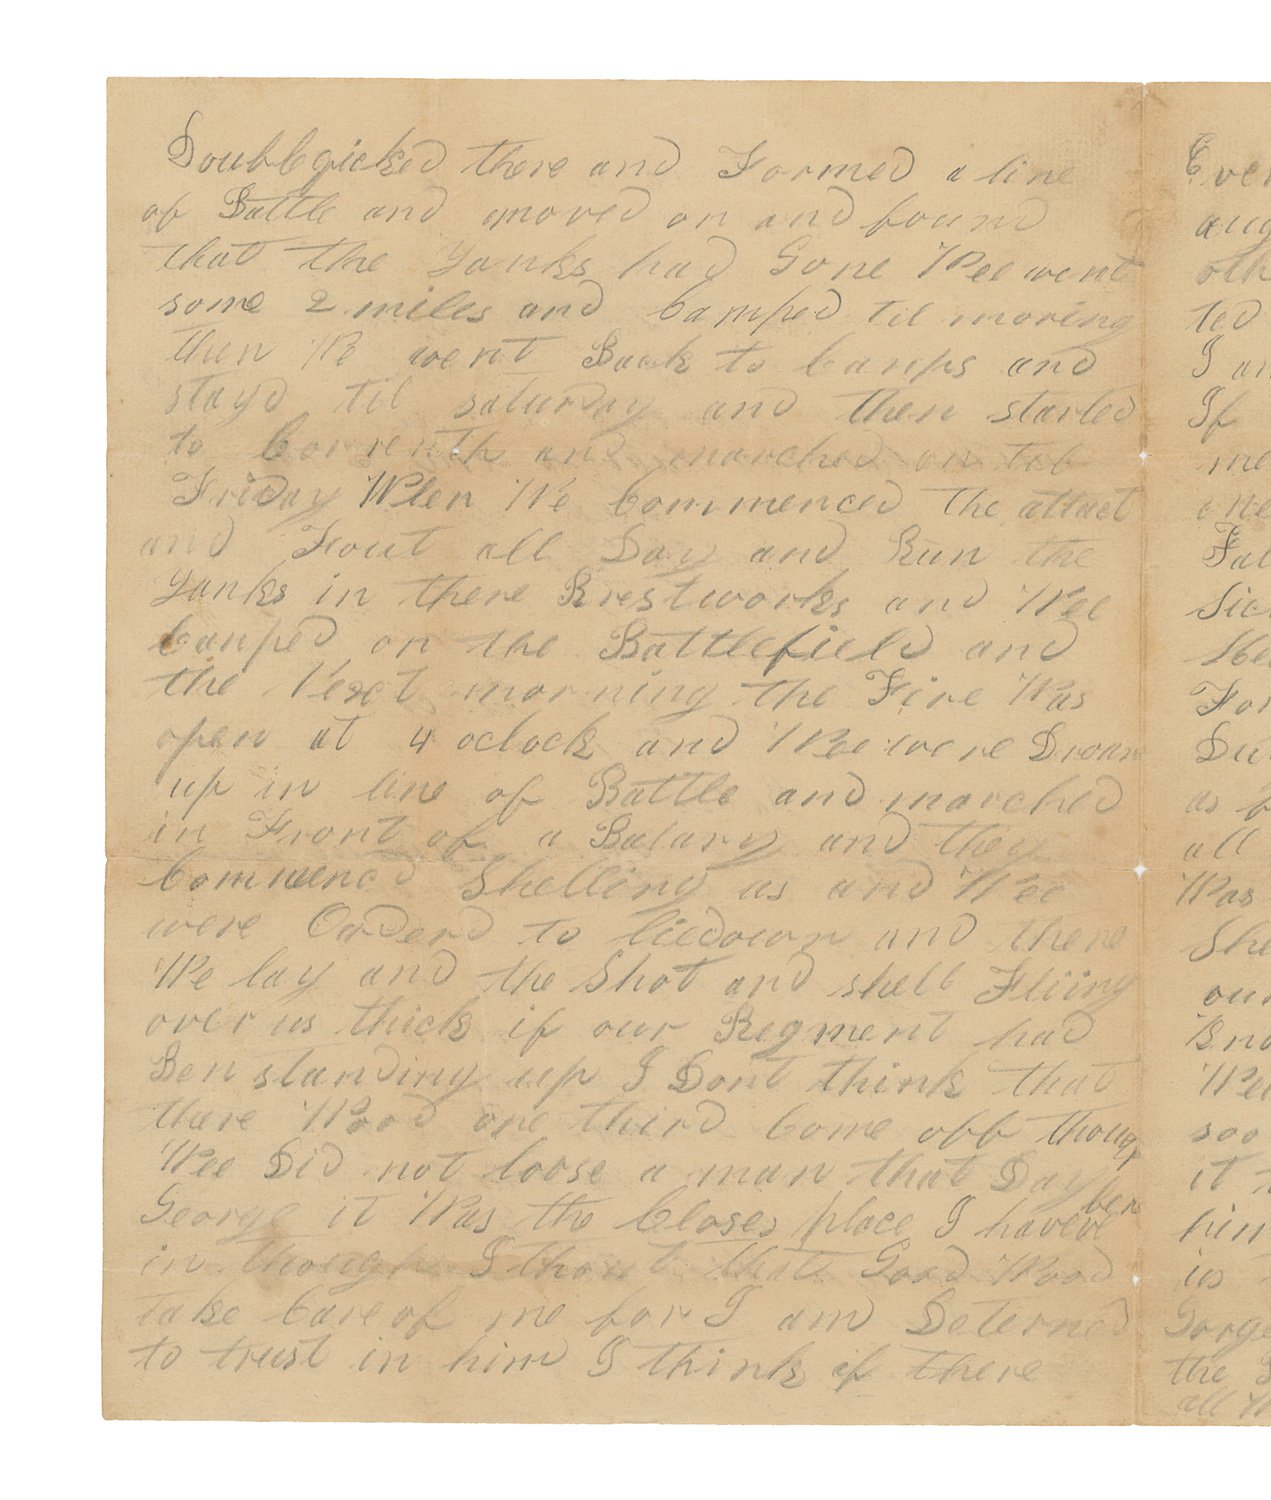 Doublequicked there and Formed a line
of Battle and moved on and found
that the Yanks had Gone Wee went
some 2 miles and Camped til moring
then We went Back to Camps and
stayd til saturday and then started
to Correnth and marched on til
Friday When We Commenced the attact
and Fout all Day and Run the
Yanks in there Brestworks and Wee
Canped on the Battlefield and
the Next morning the Fire Was
open at 4 oclock and Wee were Drawn
up in line of Battle and marched
in Front of a Batary and they
Commencd Shelling us and Wee
were Orderd to liedown and there
We lay and the Shot and shell Fliing
over us thick if our Regment had
Ben standing up I Dont think that
thare Wood one third Come off though
Wee Did not loose a man that Day
George it Was the Closes place I have ever ben
in though I thout that Good Wood
take Care of me for I am Deterned
to trust in him I think if there
Ever
aug
oth
ted
I am
If
me
one
Fal
Sic
Hea
For
Du
as
all
Was
She
our
Kno
Wee
soo
it
him
us
Gorge
the
all